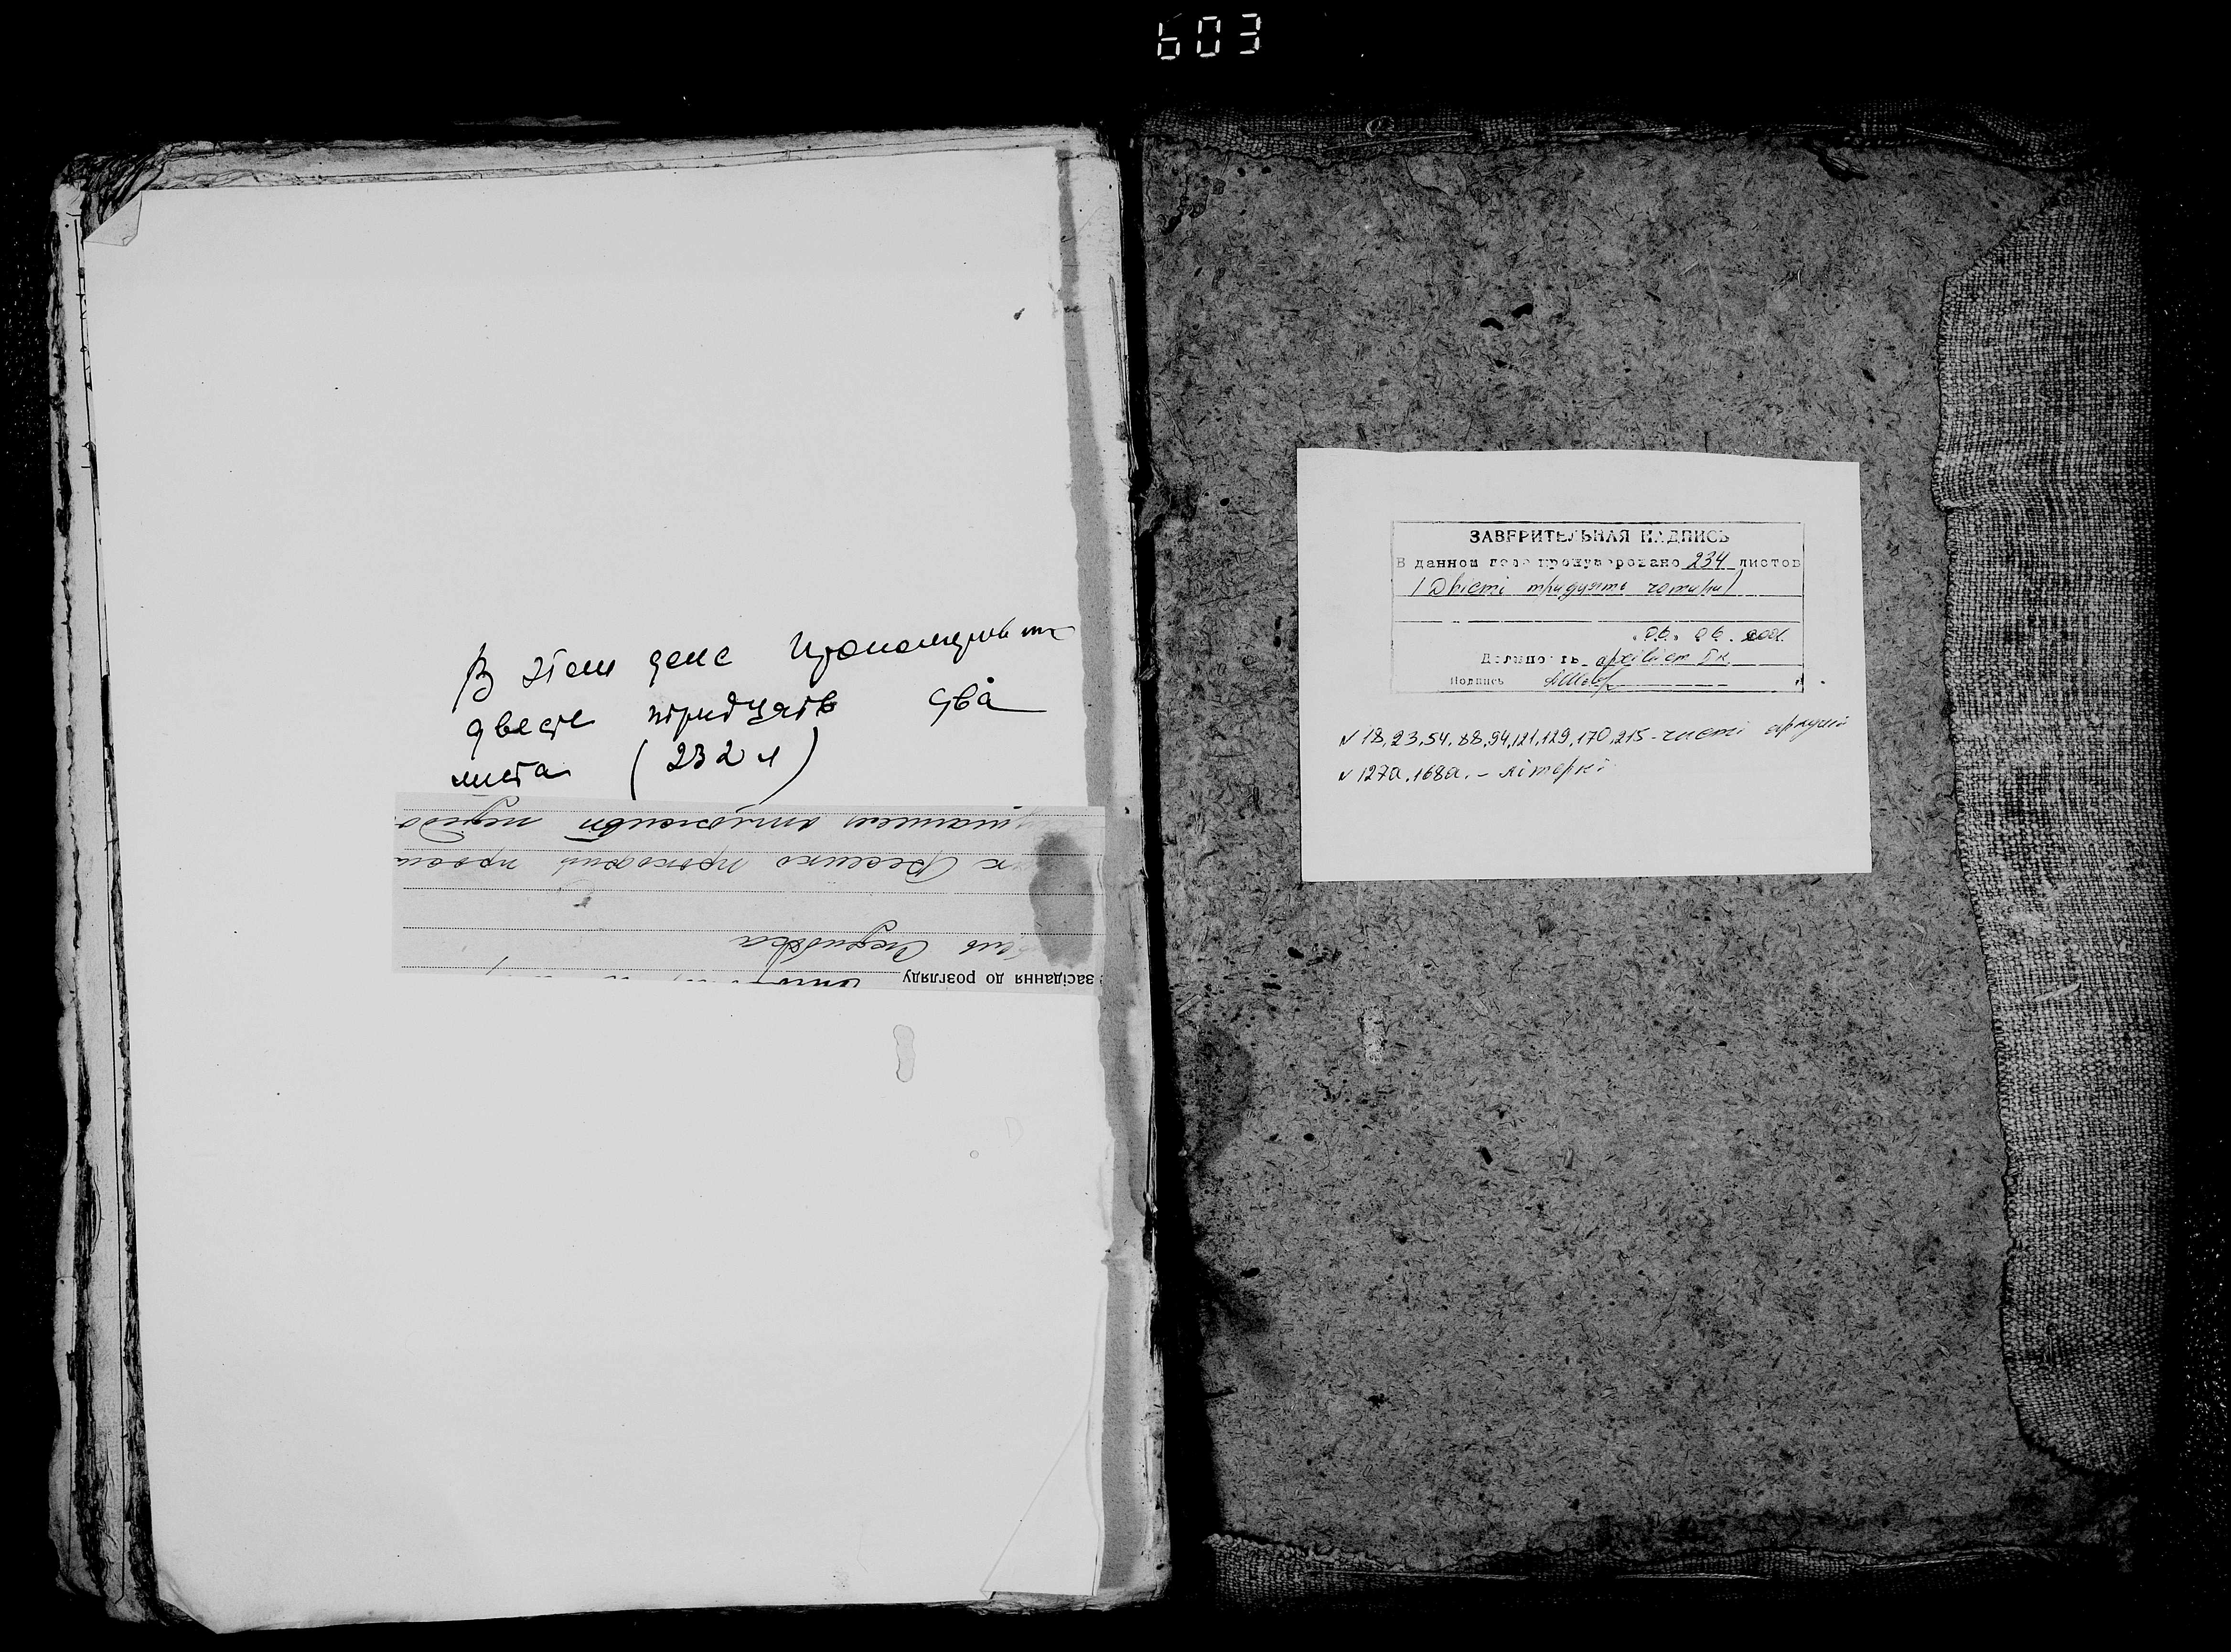 603
В этом деле пронумеров
двести тридцать два
листа (232 л)
засідання до розгляду
ЗАВЕРИТЕЛЬНАЯ НАДПИСЬ
В данном деле пронумеровано 234 листов
(Двісті тридцять чотири)
06. 06. 2001
Должность архівіст І к
Подпись
№ 18, 23, 54, 88, 94, 121, 129, 170, 215 - чисті аркуші
№ 127а, 168а. - літерні